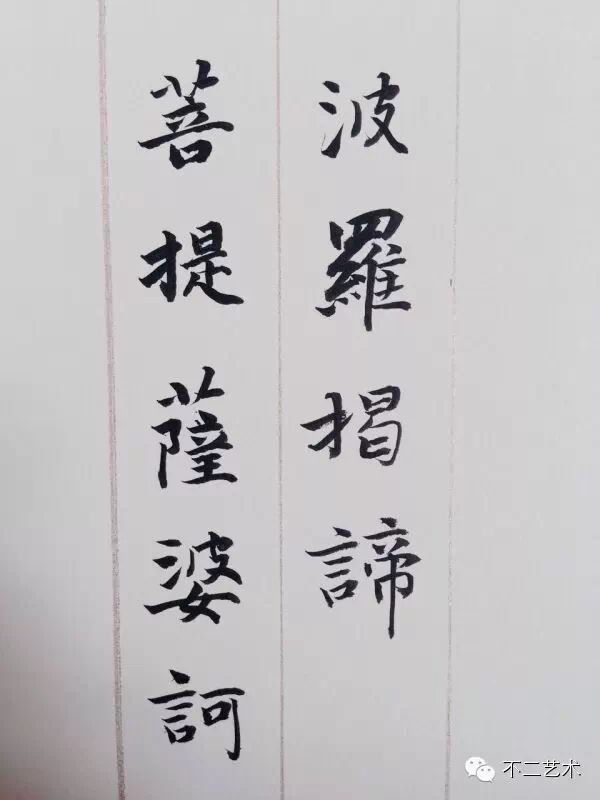 波羅揭諦
菩提薩婆訶
不二艺术